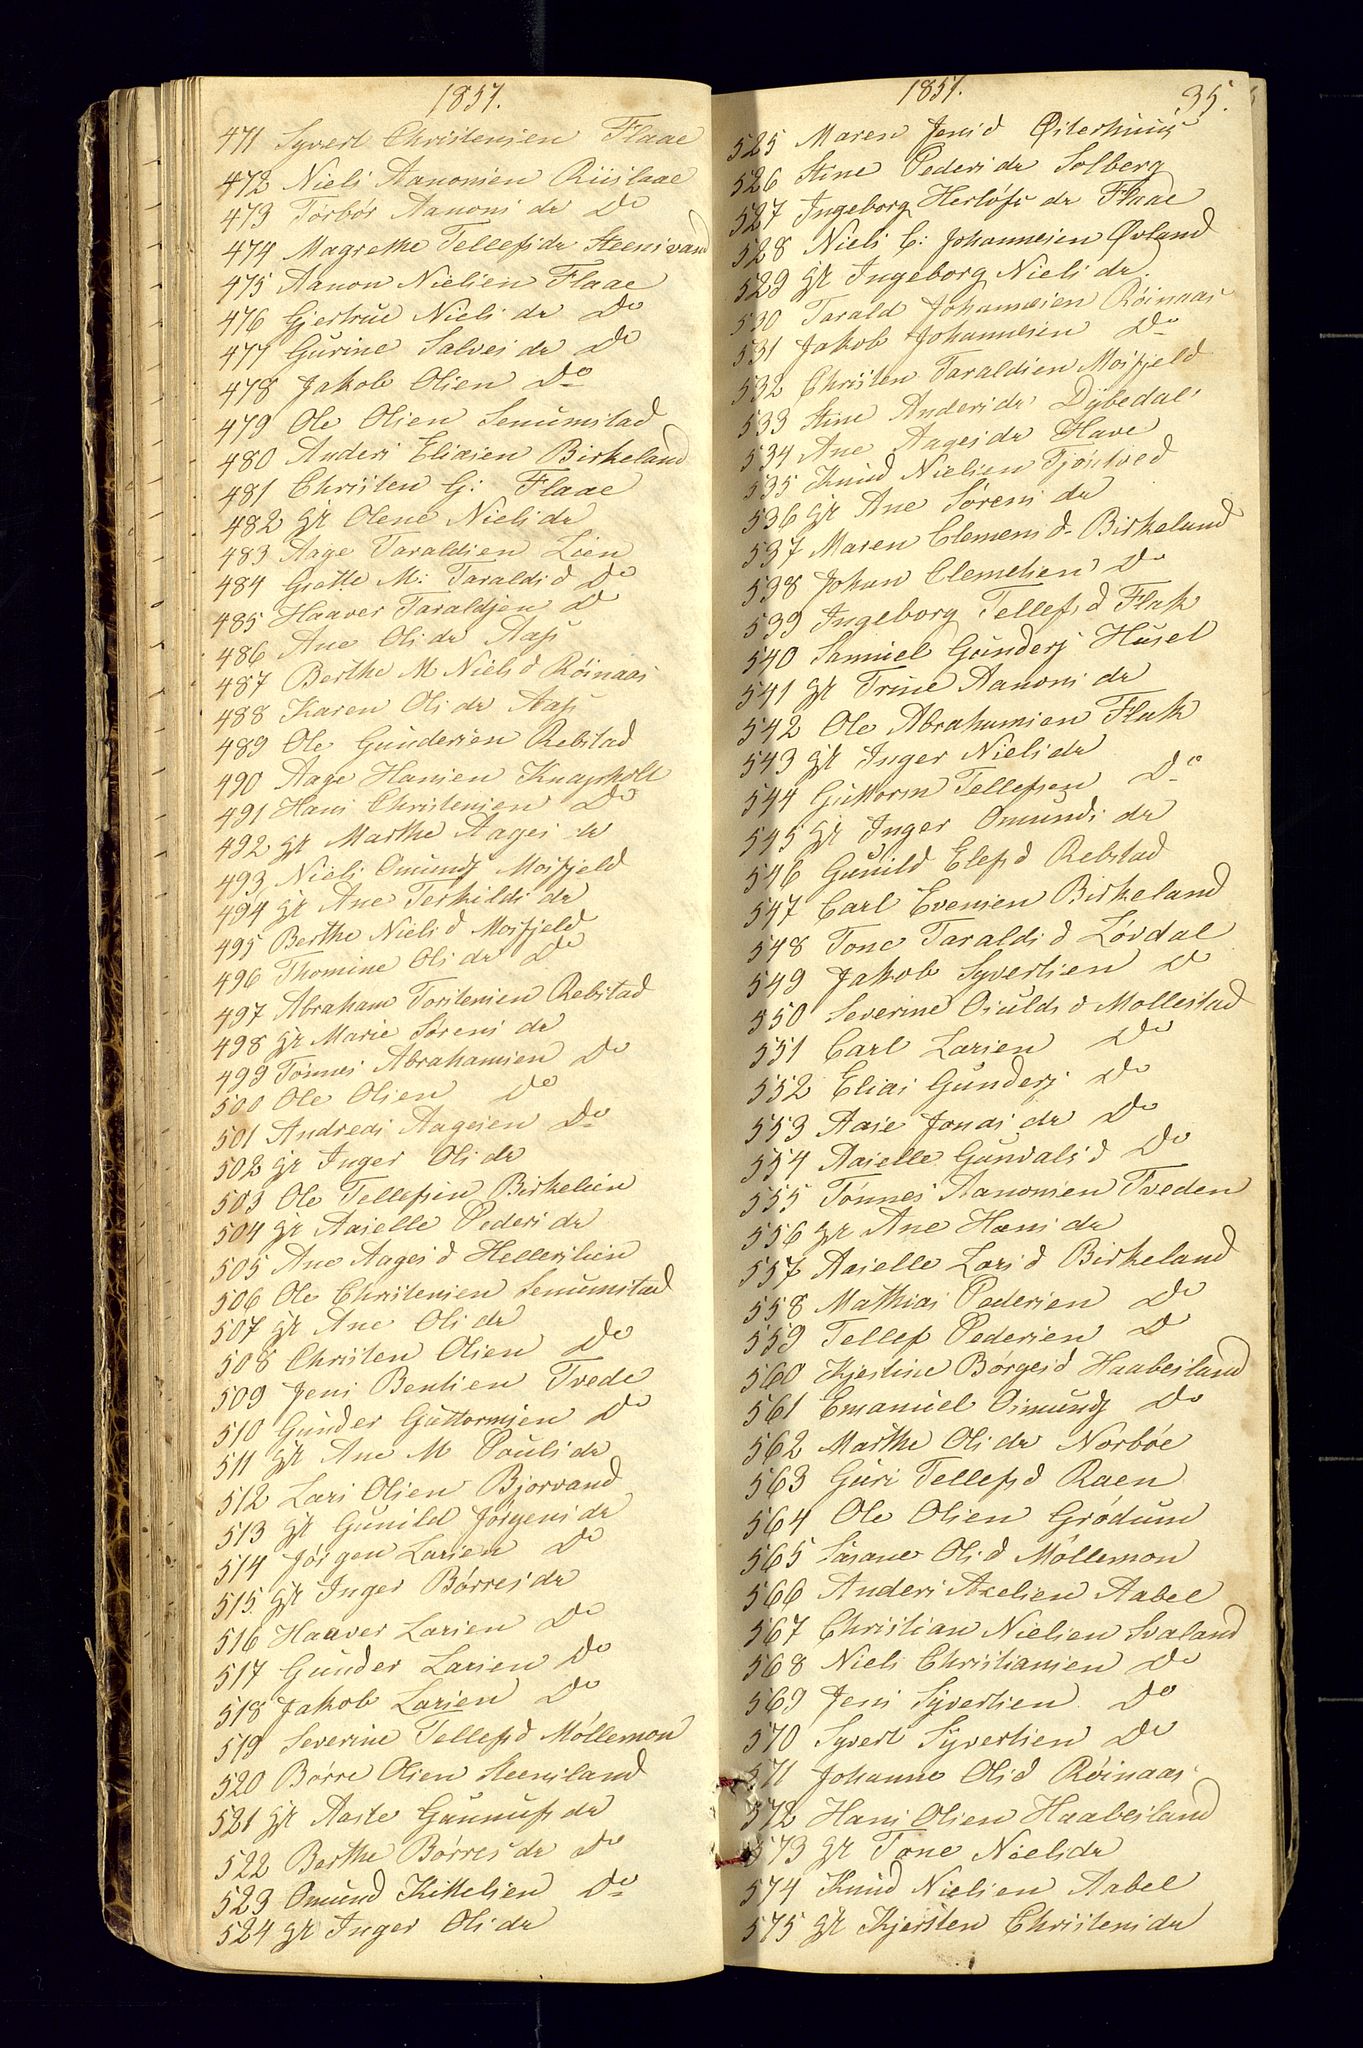 1857.
471 Syvert Christensen Flaae
472 Niels Aanonsen Riislaae
473 Torbor Aanons dr Do
474 Magrethe Tellefsdr Steensvand
475 Aanon Nielsen Flaae
476 Gjertrue Niels dr Do
477 Gurine Salves dr Do
478 Jakob Olsen Do
479 Ole Olsen Senumstad
480 Anders Eliasen Birkeland
481 Christen G: Flaae
482 gt Olene Niels dr
483 Aage Taraldsen Lien
484 Grethe M: Taralds d Do
485 Haaver Taraldsen Do
486 Ane Ols dr Aas
487 Berthe M Niels d Röinaas
488 Karen Ols dr Aas
489 Ole Gundersen Rebstad
490 Aage Hansen Knapholt
491 Hans Christensen Do
492 gt Marthe Aages dr
493 Niels Omunds Mosfjeld
494 gt Ane Terkilds dr
495 Berthe Niels d Mosfjeld
496 Thomine Ols dr Do
497 Abraham Torstensen Rebstad
498 gt Marie Sörens dr
499 Tönnes Abrahamsen Do
500 Ole Olsen Do
501 Andreas Aagesen Do
502 gt Inger Ols dr
503 Ole Tellefsen Birkelien
504 gt Aaselle Peders dr
505 Ane Aages d Hellerslien
506 Ole Christensen Senumstad
507 gt Ane Ols dr
508 Christen Olsen Do
509 Jens Bentsen Tvede
510 Gunder Guttormsen Do
511 gt Ane M Pouls dr
512 Lars Olsen Bjorvand
513 gt Gunild Jörgens dr
514 Jörgen Larsen Do
515 gt Inger Börres dr
516 Haaver Larsen Do
517 Gunder Larsen Do
518 Jakob Larsen Do
519 Severine Tellefs d Möllemon
520 Börre Olsen Steensland
521 gt Aaste Gunnufs dr
522 Berthe Börres dr Do
523 Omund Kittelsen Do
524 gt Inger Ols dr
1857. 35.
525 Maren Jens d Österhuus
526 Stine Peders dr Solberg
527 Ingeborg Herlofs dr Flaae
528 Niels C: Johannesen Övland
529 gt Ingeborg Niels dr
530 Tarald Johannesen Röinaas
531 Jakob Johannesen Do
532 Christen Taraldsen Mosfjeld
533 Stine Anders dr Dybedal
534 Ane Aages dr Have
535 Knud Nielsen Tjöntved
536 gt Ane Sörens dr
537 Maren Clemens d. Birkeland
538 Johan Clemetsen Do
539 Ingeborg Tellefs d Flak
540 Samuel Gunders Husel
541 gt Trine Aanons dr
542 Ole Abrahamsen Flak
543 gt Inger Niels dr
544 Guttorm Tellefsen Do
545 gt Inger Omunds dr
546 Gunild Elefs d Rebstad
547 Carl Evensen Birkeland
548 Tone Taralds d Lövdal
549 Jakob Syvertsen Do
550 Severine Osulds d Mollestad
551 Carl Larsen Do
552 Elias Gunders Do
553 Aase Jonas dr Do
554 Aaselle Gunvals d Do
555 Tönnes Aanonsen Tveden
556 gt Ane Hans dr
557 Aaselle Lars d Birkeland
558 Mathias Pedersen Do
559 Tellef Pedersen Do
560 Kjestine Börges d Haabesland
561 Emanuel Osmunds Do
562 Marthe Ols dr Norböe
563 Guri Tellefs d Raen
564 Ole Olsen Grödum
565 Susane Ols d Möllemon
566 Anders Axelsen Aabel
567 Christian Nielsen Svaland
568 Niels Christiansen Do
569 Jens Syvertsen Do
570 Syvert Syvertsen Do
571 Johanne Ols d Röinaas
572 Hans Olsen Haabesland
573 gt Tone Niels dr
574 Knud Nielsen Aabel
575 gt Kjersten Christens dr